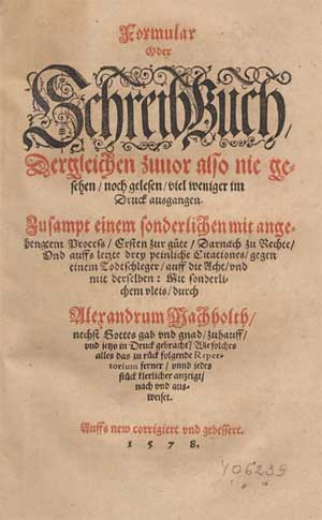 Formular
Oder
Schreib Buch /
Dergleichen zuuor also nie ge-
sehen / noch gelesen / viel weniger im
Druck ausgangen.
Zusampt einem sonderlichen mit ange-
hengtem Process / Ersten zur güte / Darnach zu Rechte /
Vnd auffs letzte drey peinliche Citationes / gegen
einem Todtschleger / auff die Acht / vnd
mit derselben : Mit sonderli-
chem vleis / durch
Alexandrum
nechst Gottes gab vnd gnad / zuhauff /
vnd jetzo in Druck gebracht / Wie solches
alles das zu rück folgende Reper-
torium ferner / vnnd jedes
stück klerlicher anzeigt /
nach vnd aus-
weiset.
Auffs new corrigiert vnd gebessert.
1 5 7 8.
406239